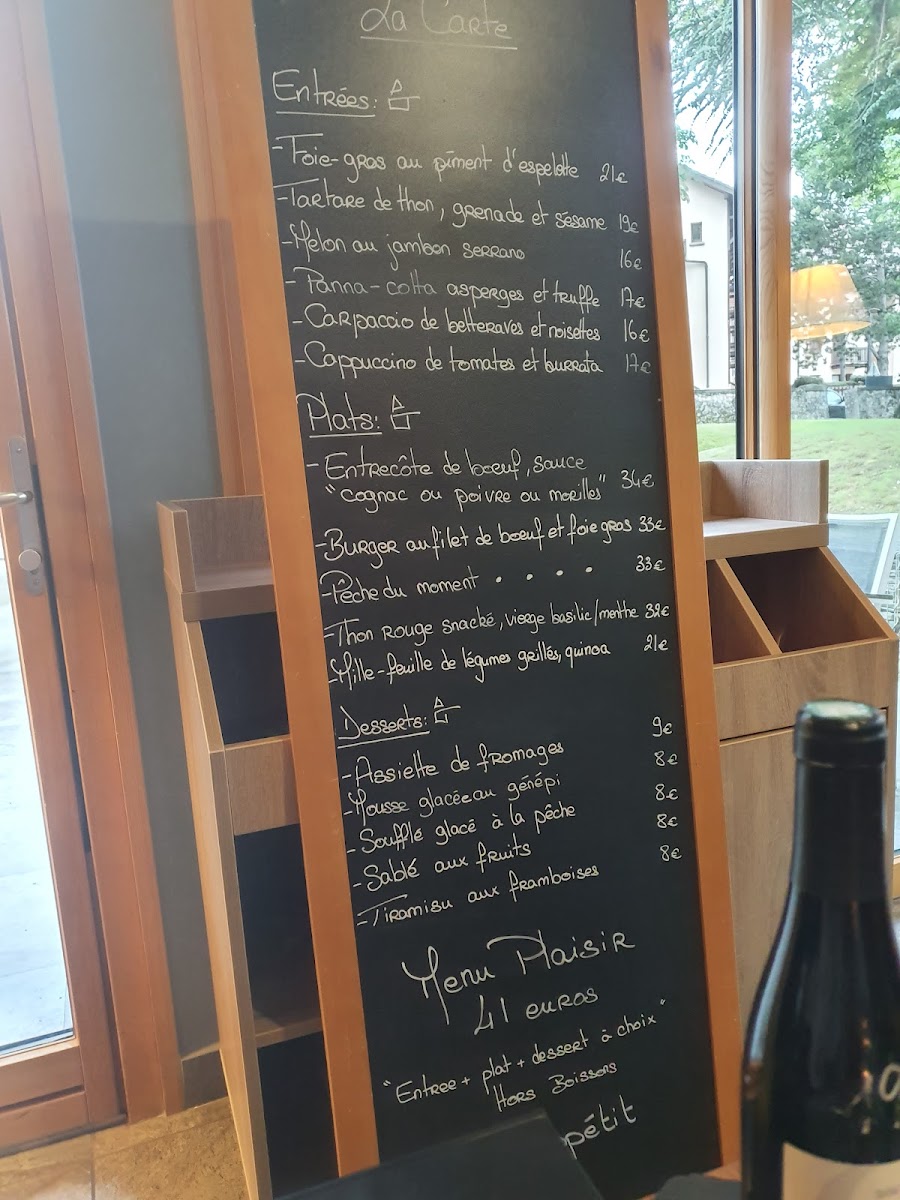 La Carte
Entrées:
-Foie-gras au piment d'espelette 21€
-Tartare de thon, grenade et sésame 19€
-Melon au jambon serrano 16€
-Panna-cotta asperges et truffe 17€
-Carpaccio de betteraves et noisettes 16€
-Cappuccino de tomates et burrata 17€
Plats:
-Entrecôte de boeuf, sauce
"cognac ou poivre ou morilles" 34€
-Burger au filet de boeuf et foie gras 33€
-Pêche du moment . . . . 33€
-Thon Rouge snacké, vierge basilic/menthe 32€
-Mille-feuille de légumes grillés, quinoa 21€
Desserts:
-Assiette de fromages 9€
-Mousse glacée au génépi 8€
-Soufflé glacé à la pêche 8€
-Sablé aux fruits 8€
-Tiramisu aux framboises 8€
Menu Plaisir
41 euros
"Entree + plat + dessert à choix"
Hors Boissons
pétit